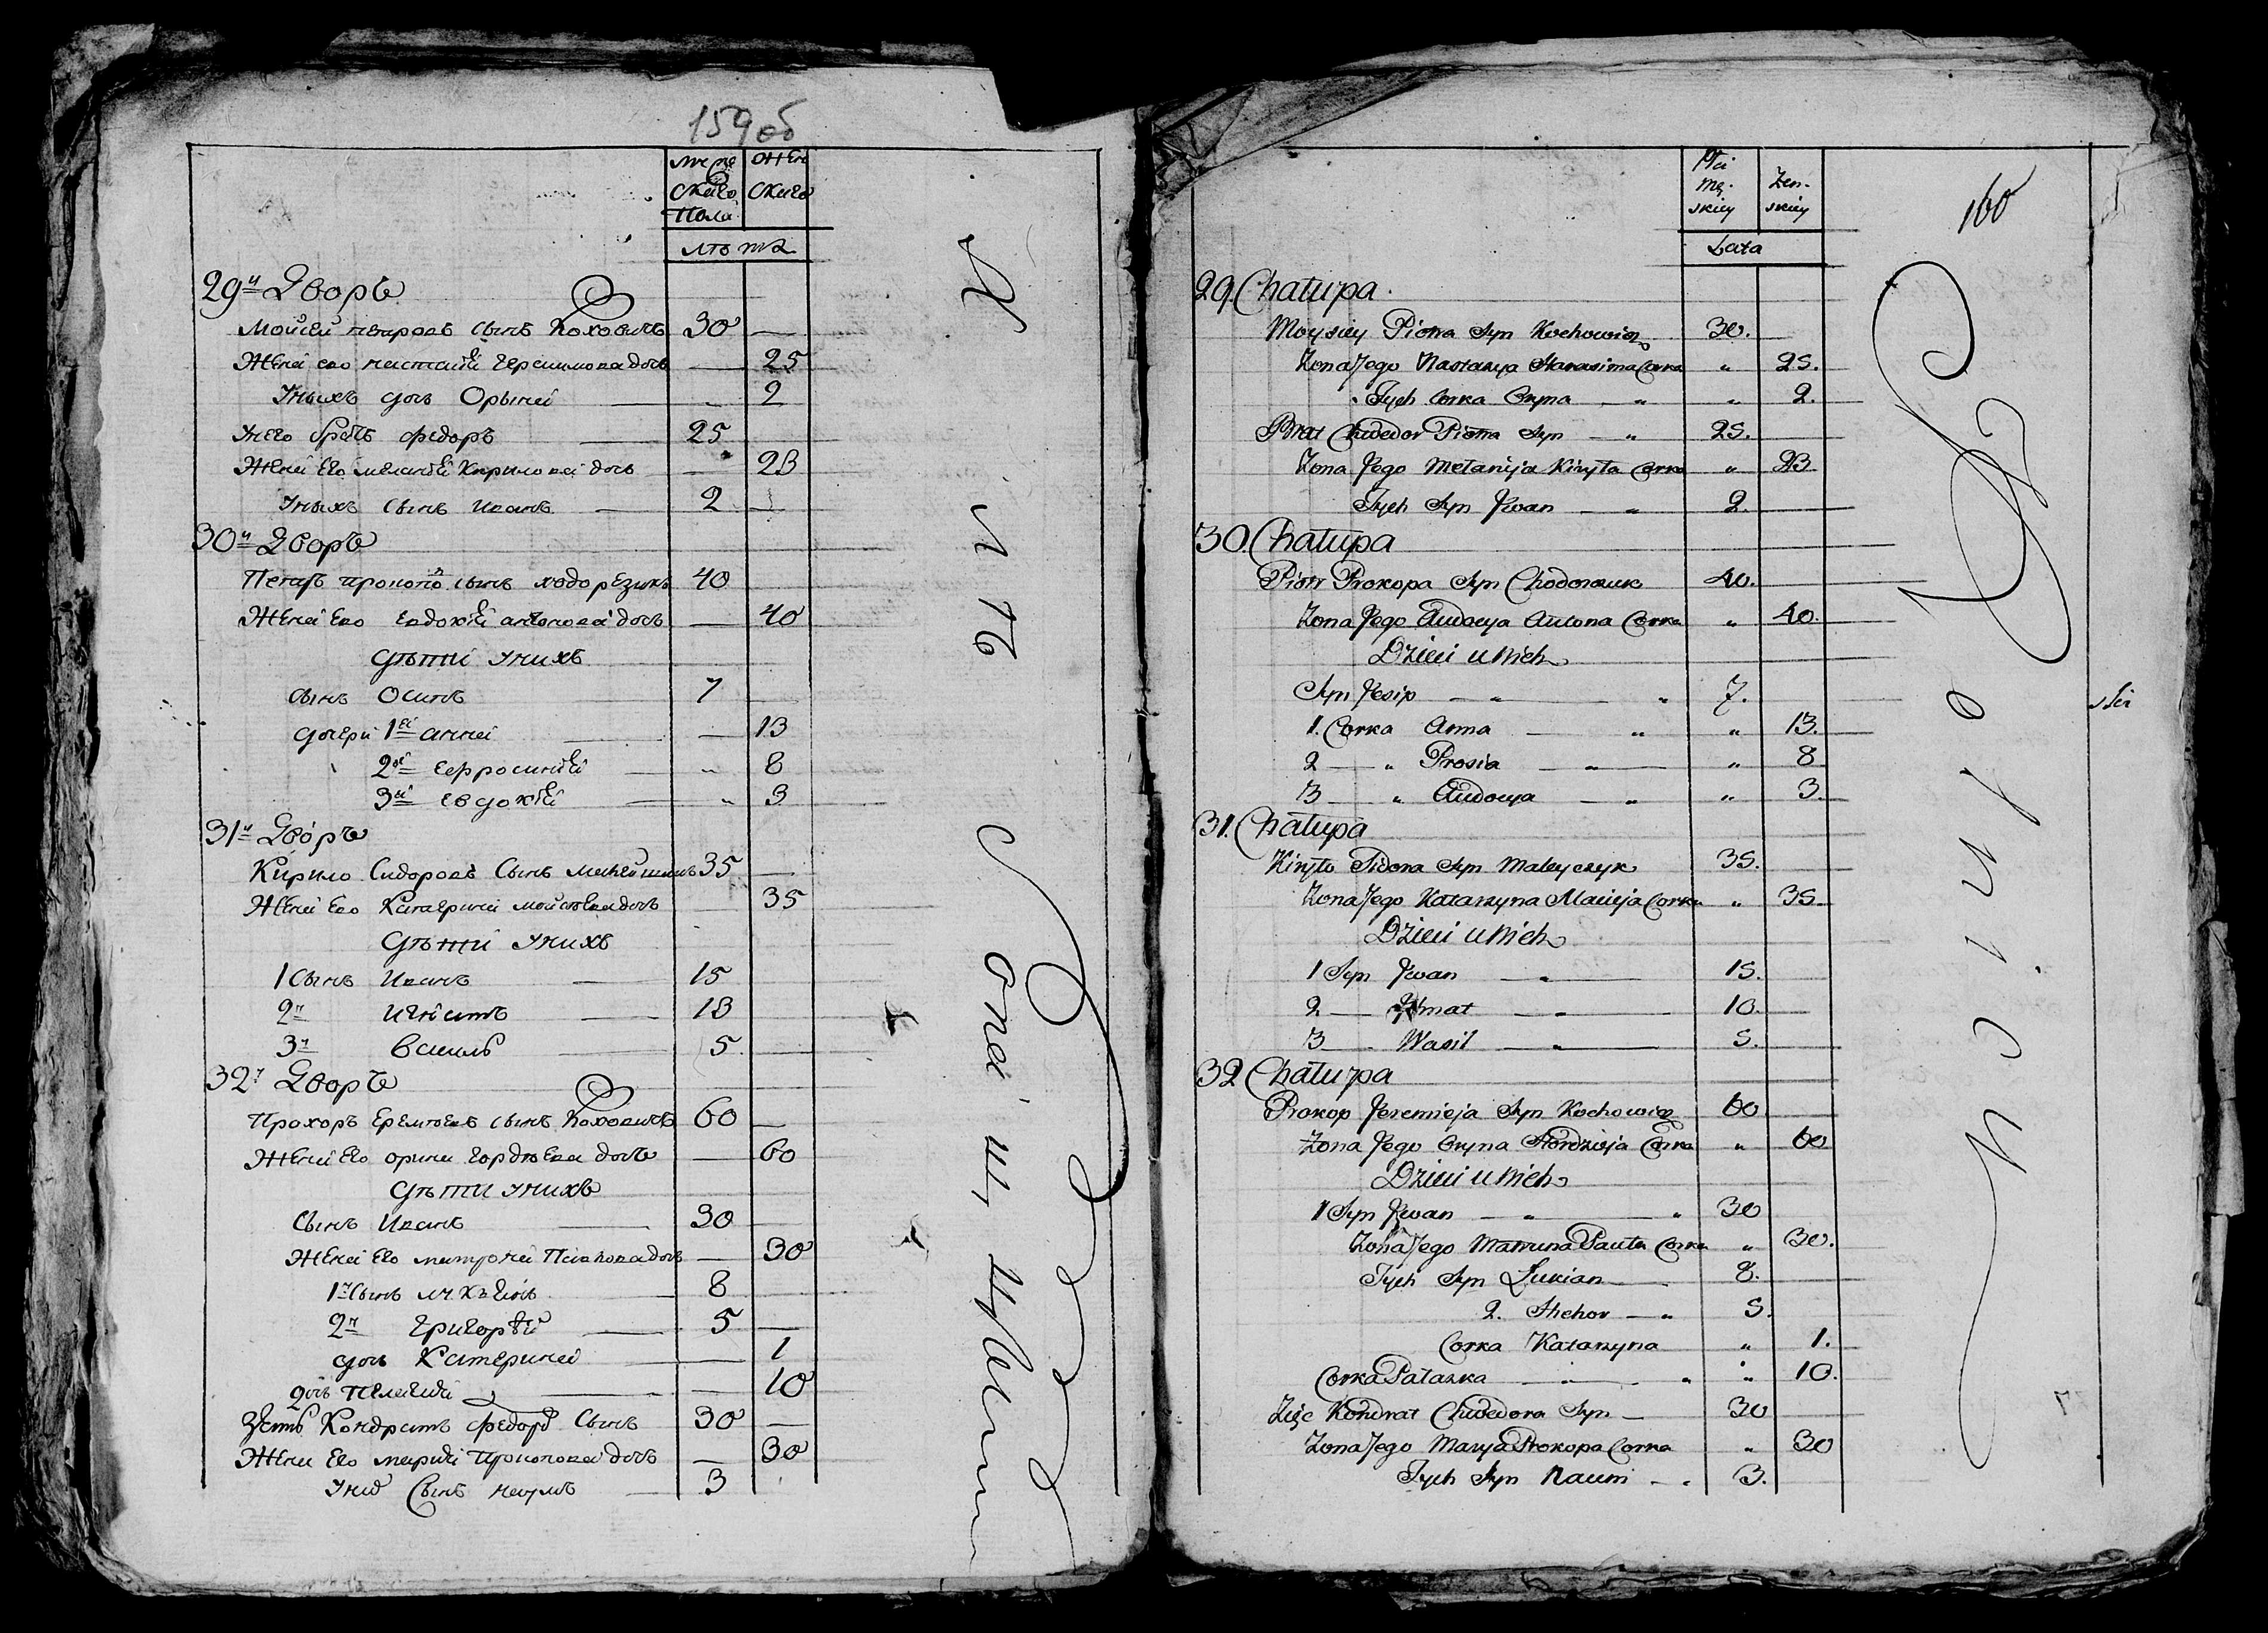 159об
муже женскаго скаго
пола
лѣта
29й Дворъ
Мойсей петровъ сынъ Коховичъ 30 —
Жена его настасія Герасимова дочь — 25
У нихъ дочь Орына — 2
У него братъ федоръ — 25
Жена Его меланія Кирилова дочь — 23
У нихъ сынъ Иванъ — 2
30й Дворъ
Петръ прокоповъ сынъ ходорезикъ 40
Жена Его Евдокія антонова дочь — 40
Дѣти у нихъ
сынъ Осипъ — 7
дочери 1я анна — 13
2я ефросинія — „ 8
3я евдокія — „ 3
31й Дворъ
Кирило Сидоровъ Сынъ 35
Жена Его Катерина дочь 35
Дѣти у нихъ
1 Сынъ Иванъ — 15
2й Игнатъ — 13
3й Василь — 5
32й Дворъ
Прохоръ Еремѣевъ сынъ Коховичъ 60 —
Жена Его орина гордѣева дочь — 60
Дѣти у нихъ
Сынъ Иванъ — 30
Жена Его матрона Павлова дочь — 30
1й Сынъ 8
2й Григорій — 5
дочь Катерина — 1
дочь Пелагія — 10
Зять Кондратъ федоров Сынъ 30 —
Жена Его марія Прокопова дочь — 30
У них Сынъ наумъ — 3
160
Płci Mę- skiey Żeń- skiey
Lata
29. Chałupa.
Moysiey Piotra Syn Kochowicz 30.
Żona Jego Nastazya Harasima Corka „ 25.
Tych Corka Oryna — „ „ 2.
Brat Chwedor Piotra Syn — „ 25.
Żona Jego Mełanija Kiryła Corka „ 23
Tych Syn Jwan — „ 2.
30. Chałupa
Piotr Prokopa Syn 40.
Żona Jego Audocya Antona Corka „ 40.
Dzieci u Nich
Syn Jesip — „ — „ 7.
1. Corka Anna — „ „ 13.
2 — „ Prosia — „ — „ 8
3 — „ Audocya — „ „ 3.
31. Chałupa
Kiryło Sidora Syn Maleyczyk 35.
Żona Jego Katarzyna Macieja Corka „ 35
Dzieci u Nich
1 Syn Jwan — „ — 15.
2 — Jhnat — „ — 10.
3 — Wasil — „ — 5.
32 Chałupa
Prokop Jeremieja Syn Kochowicz 60
Żona Jego Oryna Hordzieja Corka „ 60
Dzieci u Nich
1 Syn Jwan — „ — „ 30
Żona Jego Matruna Pawła Corka „ 30.
Tych Syn Łukian — 8.
2. Hhehor — „ 5.
Corka Katarzyna „ 1.
Corka Pałazka — „ — „ „ 10.
Zięc Kondrat Chwedora Syn — 30
Żona Jego Marya Prokopa Corka „ 30
Tych Syn Naum — „ 3.